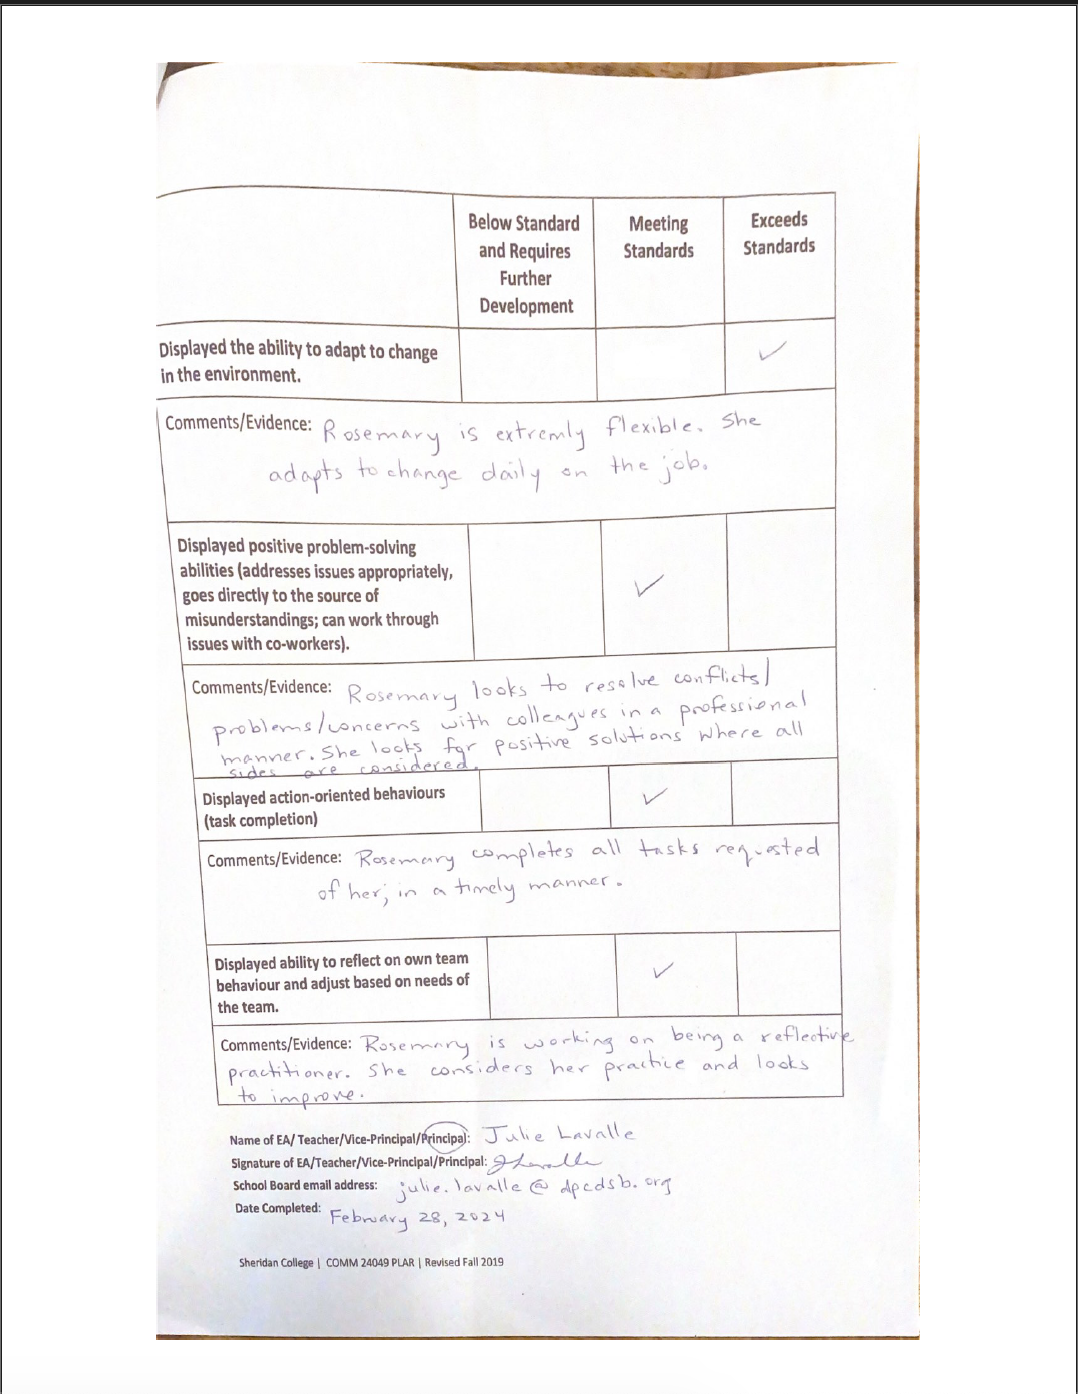 Below Standard
and Requires
Further
Development
Meeting
Standards
Exceeds
Standards
Displayed the ability to adapt to change
in the environment.
✓
Comments/Evidence: Rosemary is extremly flexible. She
adapts to change daily on the job.
Displayed positive problem-solving
abilities (addresses issues appropriately,
goes directly to the source of
misunderstandings; can work through
issues with co-workers).
✓
Comments/Evidence: Rosemary looks to resolve conflicts/
problems/concerns with colleagues in a professional
manner. She looks for positive solutions where all
sides are considered.
Displayed action-oriented behaviours
(task completion)
✓
Comments/Evidence: Rosemary completes all tasks requested
of her; in a timely manner.
Displayed ability to reflect on own team
behaviour and adjust based on needs of
the team.
✓
Comments/Evidence: Rosemary is working on being a reflective
practitioner. She considers her practice and looks
to improve.
Name of EA/ Teacher/Vice-Principal/Principal: Julie Lavalle
Signature of EA/Teacher/Vice-Principal/Principal: JLavalle
School Board email address: julie.lavalle@dpcdsb.org
Date Completed: February 28, 2024
Sheridan College | COMM 24049 PLAR | Revised Fall 2019